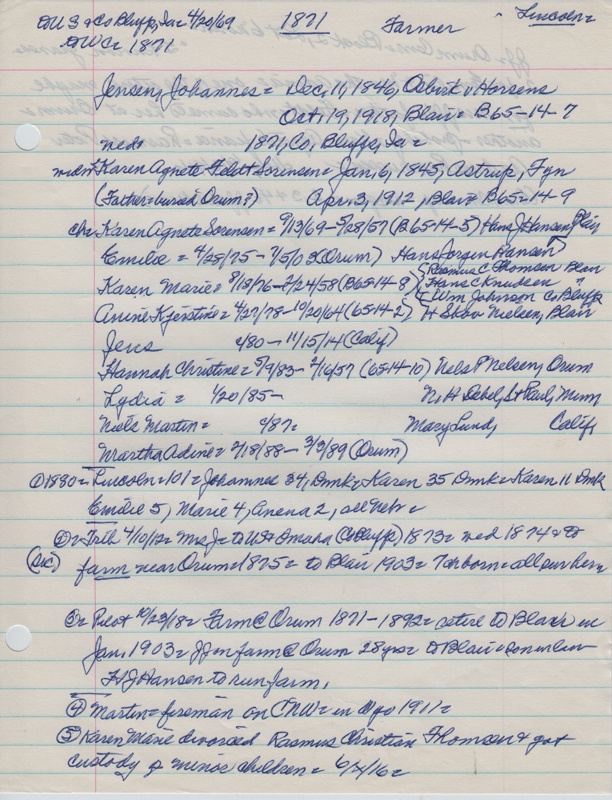 DUS & Co Bluffs, Ia 4/20/69 1871 Farmer Lincoln=
DWC= 1871
Jensen, Johannes = Dec, 11, 1846, Osbirk v Horsens
Oct, 19, 1918, Blair = B65-14-7
med= 1871, Co, Bluffs, Ia =
Karen Agnete Feldt Sorensen = Jan, 6, 1845, Astrup, Fyn
(Father = buried Orum?) Apr, 3, 1912, Blair B65-14-9
ch = Karen Agnete Sorensen = 9/13/69-5/28/57 (B65-14-5) Hans J Hansen, Blair
Emilie = 4/25/75- 7/5/02 (Orum) Hans Jorgen Hansen
Karen Marie = 8/18/76-2/24/58 (B65-14-8) Rasmus C Thomsen Blair
Hans C Knudsen "
Wm Johnson Co Bluffs
Anine Kjerstine = 4/27/78-10/20/64 (65-14-2) H Skov Nielsen, Blair
Jens 4/80 - 11/15/14 (Calif)
Hannah Christine = 5/9/83- 2/16/57 (65-14-10) Nels P Nelsen, Orum
Lydia = 1/20/85- N, H Debel, St Paul, Minn
Niels Martin = 4/87= Mary Lund, Calif
Martha Adine = 2/18/88- 3/3/89 (Orum)
① 1880 = Lincoln = 101 = Johannes 34, Dmk = Karen 35 Dmk = Karen 11 Dmk
Emilie 5, Marie 4, Anena 2, all Neb =
② = Trib 4/10/12 = Mrs J = to US & Omaha (Co Bluffs) 1873 = med 1874 = to
(sic) farm near Orum = 1875 = to Blair 1903 = 7 ch born = all surv her =
③ = Pilot 10/23/18 = Farm @ Orum 1871-1892 = retire to Blair in
Jan, 1903 = JJ on farm @ Orum 28 yrs = to Blair = son in law
HJ Hansen to run farm,
④ Martin = foreman on CNW = in Wyo 1911 =
⑤ Karen Marie divorced Rasmus Christian Thomsen & got
custody of minor children = 6/2/16 =